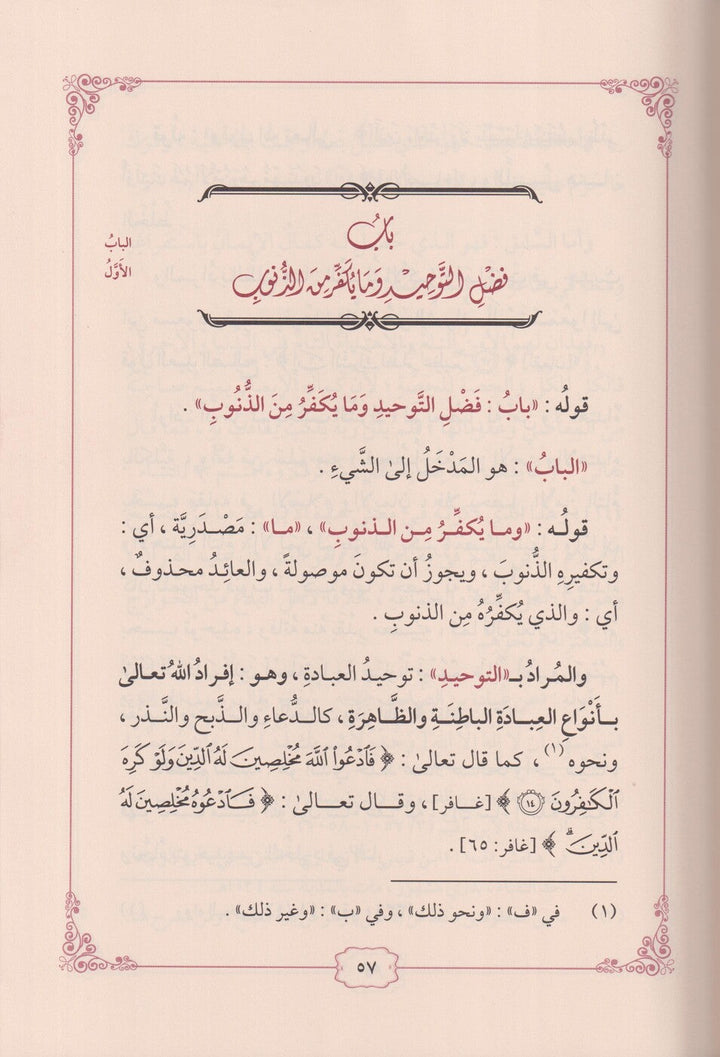 بابُ
فضْلِ التَّوحِيدِ وَمَا يُكَفِّرُ مِنَ الذُّنُوبِ
البابُ
الأَوَّلُ
قولُه : «بابُ : فَضْلِ التَّوحيدِ وَمَا يُكَفِّرُ مِنَ الذُّنُوبِ» .
«البابُ» : هو المَدْخَلُ إلىٰ الشَّيءِ .
قولُـه : «ومـا يُكفِّـرُ مِـن الـذنوبِ» ، «مـا» : مَصْـدَرِيَّة ، أي :
وتكفيرِهِ الذُّنوبَ ، ويجوزُ أن تكونَ موصولةً ، والعائِدُ محذوفٌ ،
أي : والذي يُكفِّرُهُ مِن الذنوبِ .
والمُرادُ بـ«التوحيدِ» : توحيدُ العبادةِ ، وهو : إفرادُ اللهُ تعالىٰ
بـأَنْوَاعِ العِبـادَةِ الباطِنَـةِ والظَّـاهِرَةِ ، كالـدُّعاءِ والـذَّبحِ والنَّـذر ،
ونحوِه (١) ، كما قال تعالىٰ : ﴿ فَٱدْعُوا۟ ٱللَّهَ مُخْلِصِينَ لَهُ ٱلدِّينَ وَلَوْ كَرِهَ
ٱلْكَٰفِرُونَ ١٤ ﴾ [غـافر] ، وقـال تعـالىٰ : ﴿ فَـٱدْعُوهُ مُخْلِصِينَ لَهُ
ٱلدِّينَ ۗ ﴾ [غافر: ٦٥] .
(١) في «ف» : «ونحو ذلك» ، وفي «ب» : «وغير ذلك» .
٥٧